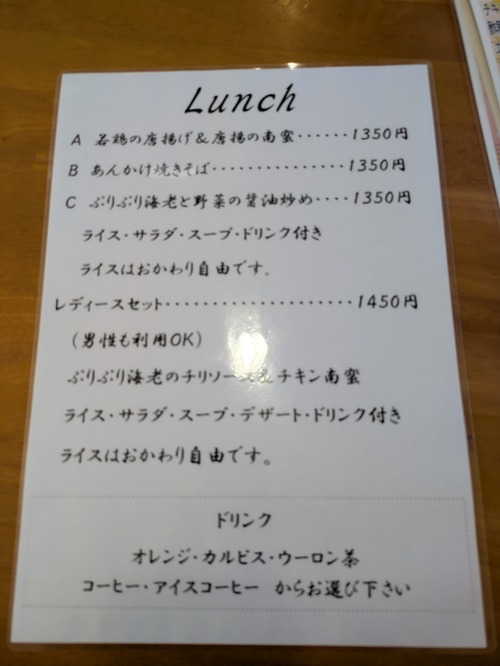 Lunch
A 若鶏の唐揚げ&唐揚の南蜜······1350円
B あんかけ焼きそば··············1350円
C ぷりぷり海老と野菜の醤油炒め····1350円
ライス・サラダ・スープ・ドリンク付き
ライスはおかわり自由です。
レディースセット····················1450円
(男性も利用OK)
ぷりぷり海老のチリソース チキン南蜜
ライス・サラダ・スープ・デザート・ドリンク付き
ライスはおかわり自由です。
ドリンク
オレンジ・カルピス・ウーロン茶
コーヒー・アイスコーヒー からお選び下さい